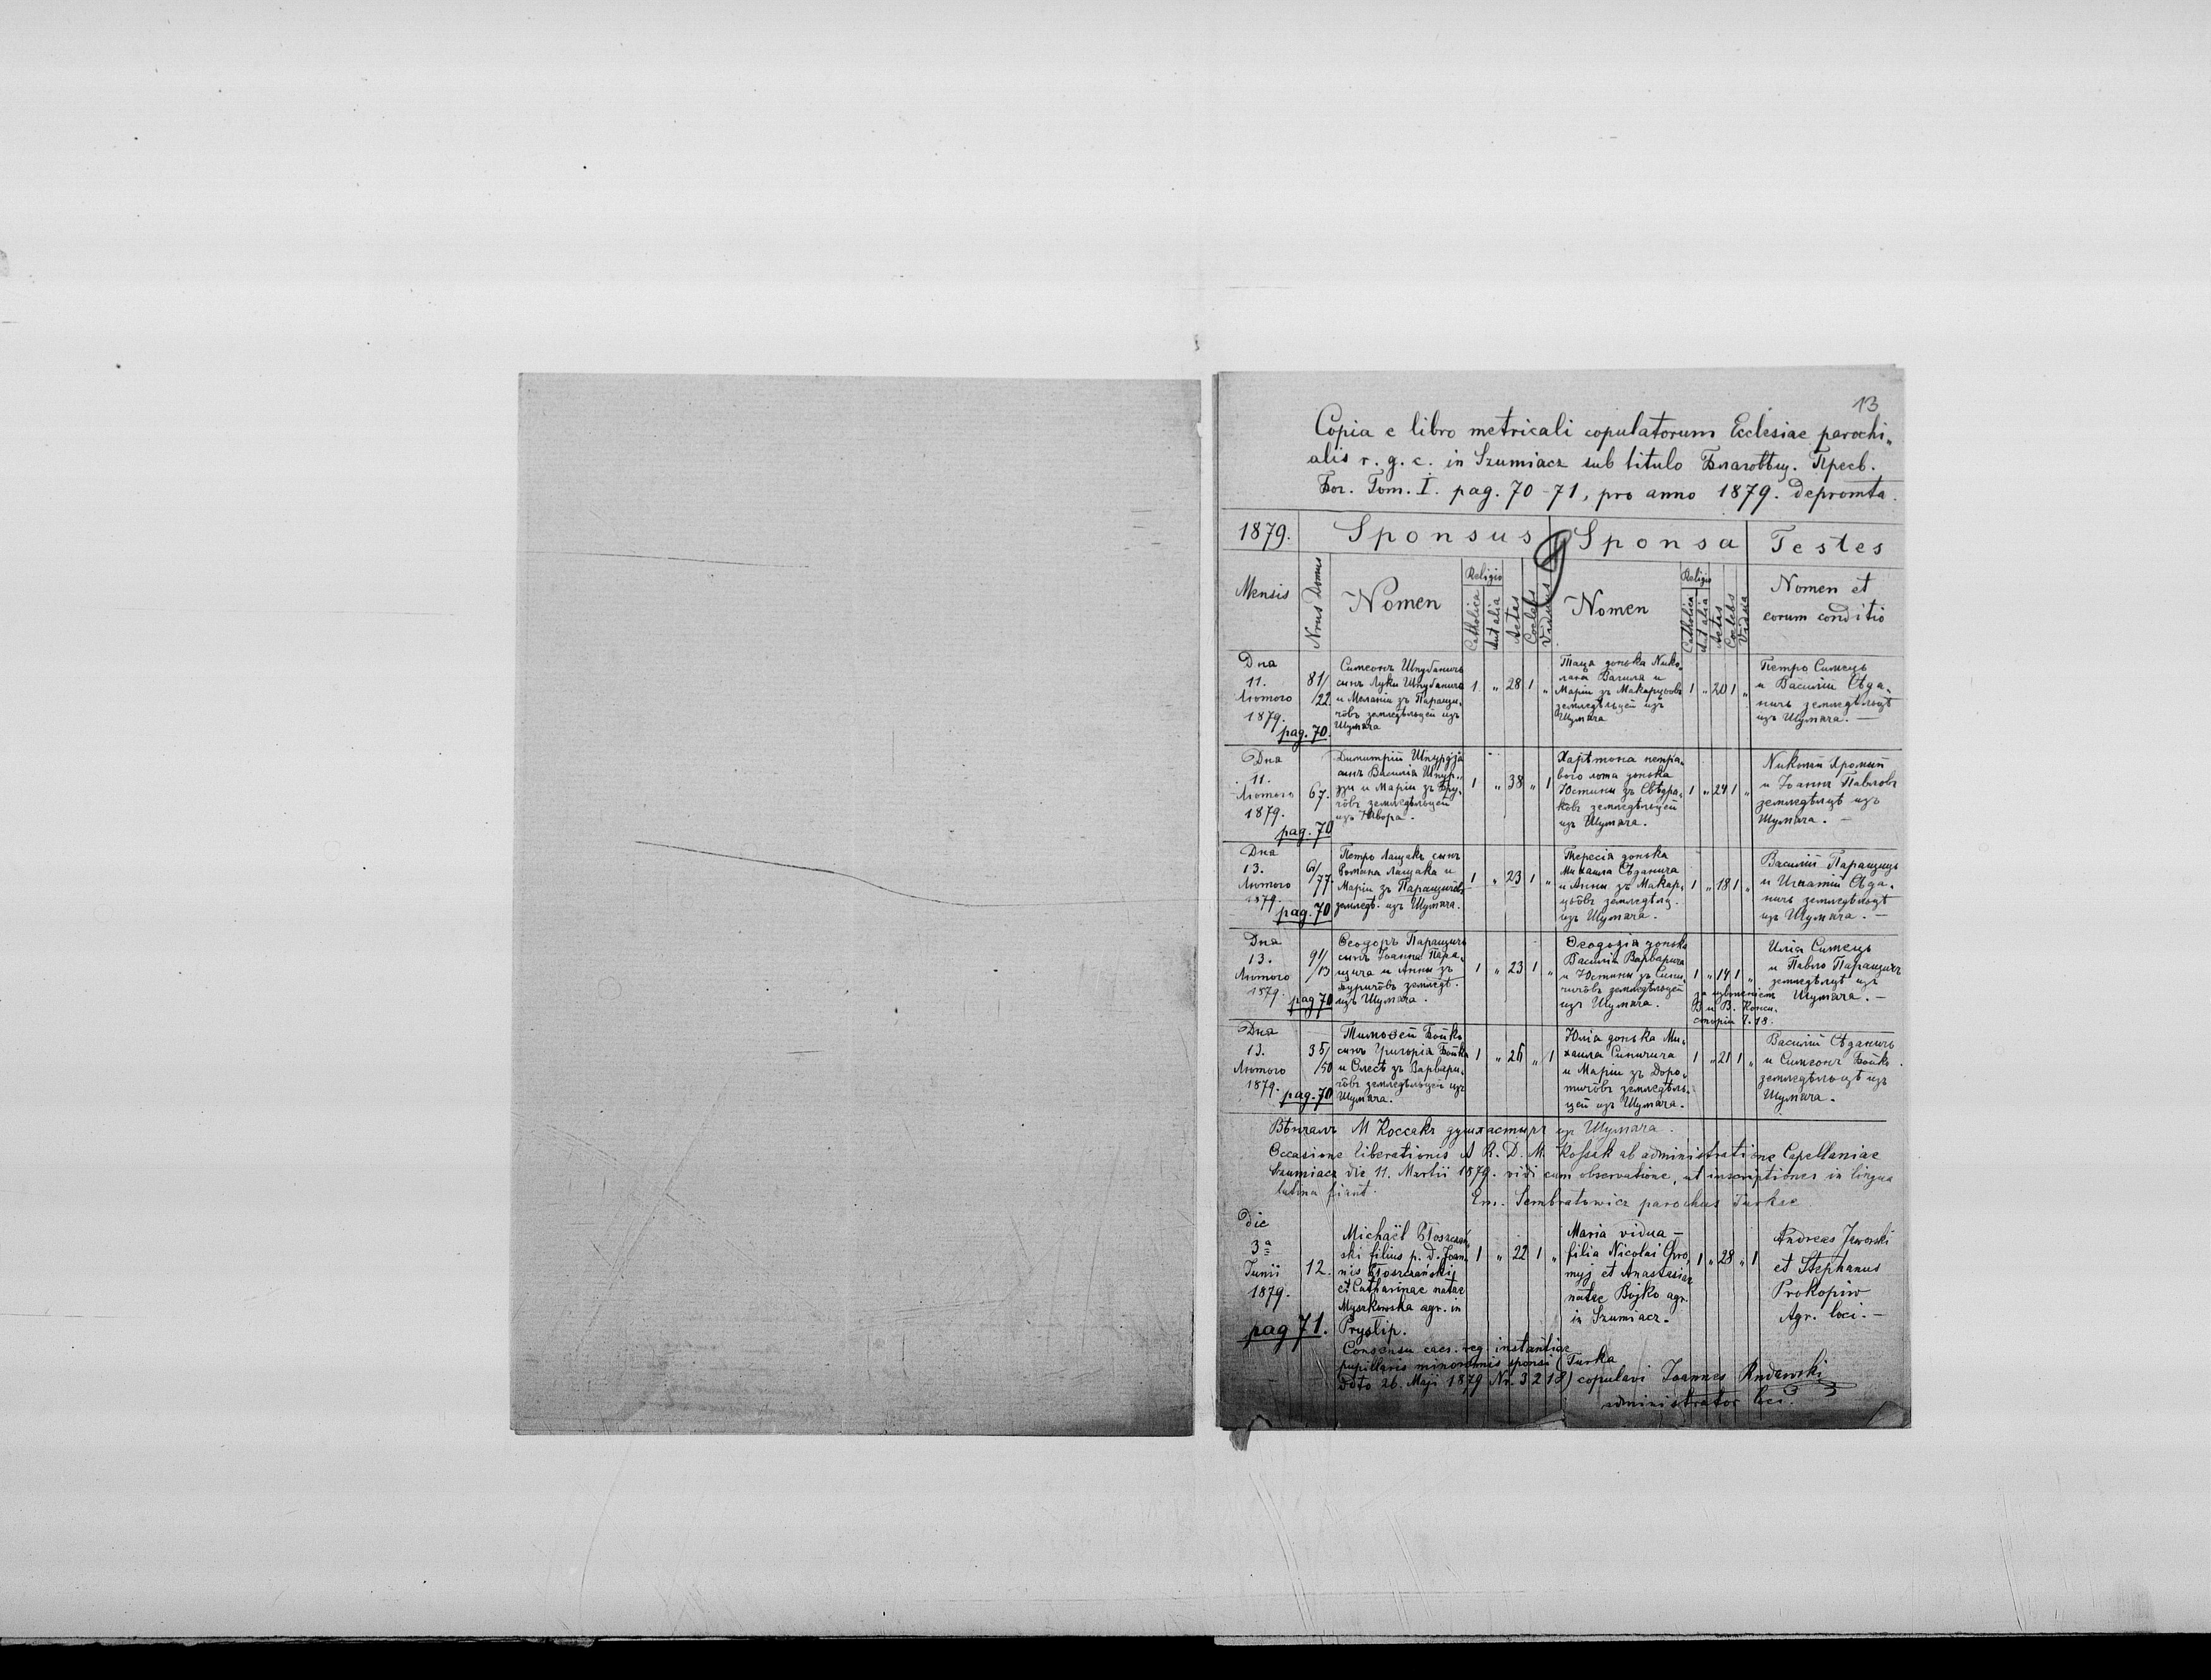 13
Copia e libro metricali copulatorum Ecclesiae parochi„
alis r. g. c. in Szumiacz sub titulo Благовѣщ. Пресв.
Бог. Tom. I. pag. 70-71, pro anno 1879. depromta.
1879. Sponsus Sponsa Testes
Mensis Nrus Domus Nomen Religio Catholica Aut alia Aetas Coelebs Viduus Nomen Religio Catholica Aut alia Aetas Coelebs Vidua Nomen et
eorum conditio
Дня
11.
Лютого
1879.
pag. 70.
81/
/22
Симеонъ
сынъ Луки
и Меланіи зъ Паращи„
чôвъ земледѣльцей изъ
Шумяча
1 „ 28 1 „
донька Нико„
лая и
Маріи зъ
земледѣльцей изъ
Шумяча
1 „ 20 1 „
Петро Симець
и Василій Сѣда„
ничъ земледѣльцѣ
изъ Шумяча. —
Дня
11.
Лютого
1879.
pag. 70
67.
Димитрій
сынъ Василія
и Маріи зъ
земледѣльцей
изъ Явора.
1 „ 38 „ 1
донька
Юстины зъ
земледѣльцей
изъ Шумяча.
1 „ 24 1 „
Хромый
и Іоаннъ Павловъ
земледѣльцѣ изъ
Шумяча. —
Дня
13.
Лютого
1879.
pag. 70
61/
/77.
Петро Лащакъ сынъ
Романа Лащака и
Маріи зъ Паращичôвъ
земледѣ. изъ Шумяча.
1 „ 23 1 „
Тересія донька
Михаила Сѣданича
и Анны зъ Макар„
цьôвъ земледѣлц.
изъ Шумяча.
1 „ 18 1 „
Василій Паращичъ
и Игнатій Сѣда„
ничъ земледѣльцѣ
изъ Шумяча. —
Дня
13.
Лютого
1879.
pag 70
91/
/13
Ѳеодоръ Паращичъ
сынъ Іоанна Пара„
щича и Анны зъ
земледѣ.
изъ Шумяча.
1 „ 23 1 „
Ѳеодосія донька
Василія Варварича
и Юстины зъ Сини„
чичôвъ земледѣльцей
изъ Шумяча.
1 „ 14 1 „
за
В. Конси„
сторіи
Илія Симець
и Павло Паращичъ
земледѣльцѣ изъ
Шумяча. —
Дня
13.
Лютого
1879.
pag. 70
35/
/50
Тимоѳей Бойко
сынъ Григорія Бойка
и Олесѣ зъ Варвари„
чôвъ земледѣльцей изъ
Шумяча.
1 „ 26 „ 1
Юлія донька Ми„
хаила Синичича
и Маріи зъ Доро„
тичôвъ земледѣль„
цей изъ Шумяча.
1 „ 21 1 „
Василій Сѣданичъ
и Симеонъ Бойко
земледѣльцѣ изъ
Шумяча.
Вѣнчалъ М Коссакъ душпастырь изъ Шумяча.
Occasione liberationis A R. D. M. Kossak ab administratione Capellaniae
Szumiacz die 11. Martii 1879. vidi cum observatione, ut inscriptiones in lingua
latina fiant.
Em. Sembratowicz parochus Turkae.
die
3ª
Junii
1879.
pag 71.
12.
Michaël Błoszczań„
ski filius p. d. Joan„
nis Błoszczański
et Catharinae natae
Myszkowska agr. in
Prystip.
1 „ 22 1 „
Maria vidua —
filia Nicolai Chro„
myj et Anastasiae
natae Bojko agr.
in Szumiacz.
1 „ 28 „ 1
Andreas Jaworski
et Stephanus
Prokopiw
Agr. loci. —
Consensu caes. reg. instantiae
pupillaris minorennis sponsi (Turka
ddto 26. Maji 1879 Nr. 3218) copulavi Joannes Rudawski
administrator loci.